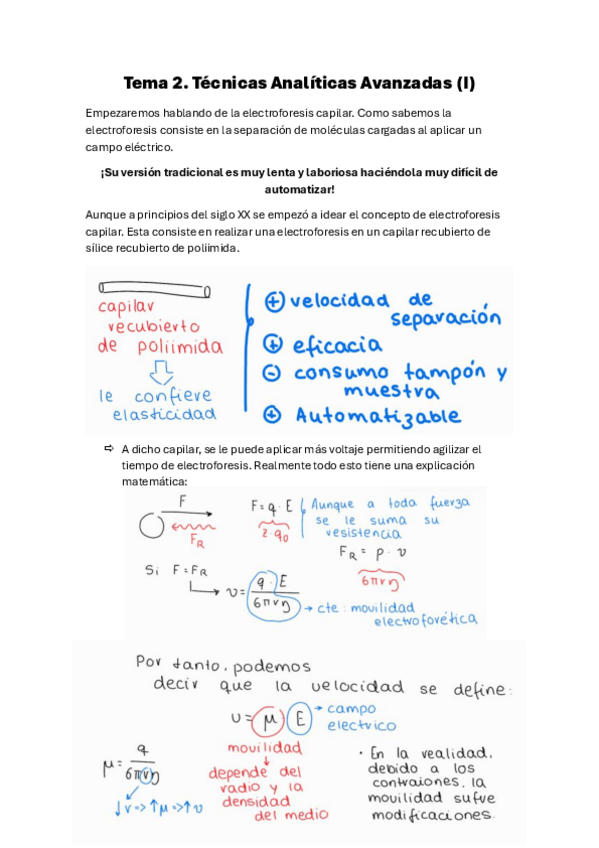 Tema 2. Técnicas Analíticas Avanzadas (I)
Empezaremos hablando de la electroforesis capilar. Como sabemos la
electroforesis consiste en la separación de moléculas cargadas al aplicar un
campo eléctrico.
¡Su versión tradicional es muy lenta y laboriosa haciéndola muy difícil de
automatizar!
Aunque a principios del siglo XX se empezó a idear el concepto de electroforesis
capilar. Esta consiste en realizar una electroforesis en un capilar recubierto de
sílice recubierto de poliimida.
capilar
recubierto
de poliimida
le confiere
elasticidad
+ velocidad de
separación
+ eficacia
- consumo tampón y
muestra
+ Automatizable
⇨ A dicho capilar, se le puede aplicar más voltaje permitiendo agilizar el
tiempo de electroforesis. Realmente todo esto tiene una explicación
matemática:
F
FR
F = q · E
z · q0
Aunque a toda fuerza
se le suma su
resistencia
FR = ρ · v
6πrη
Si F = FR
v = q · E / 6πrη
→ cte: movilidad
electroforética
Por tanto, podemos
decir que la velocidad se define:
v = μ E → campo
eléctrico
movilidad
depende del
radio y la
densidad
del medio
μ = q / 6πrη
↓r => ↑μ => ↑v
· En la realidad,
debido a los
contraiones, la
movilidad sufre
modificaciones.